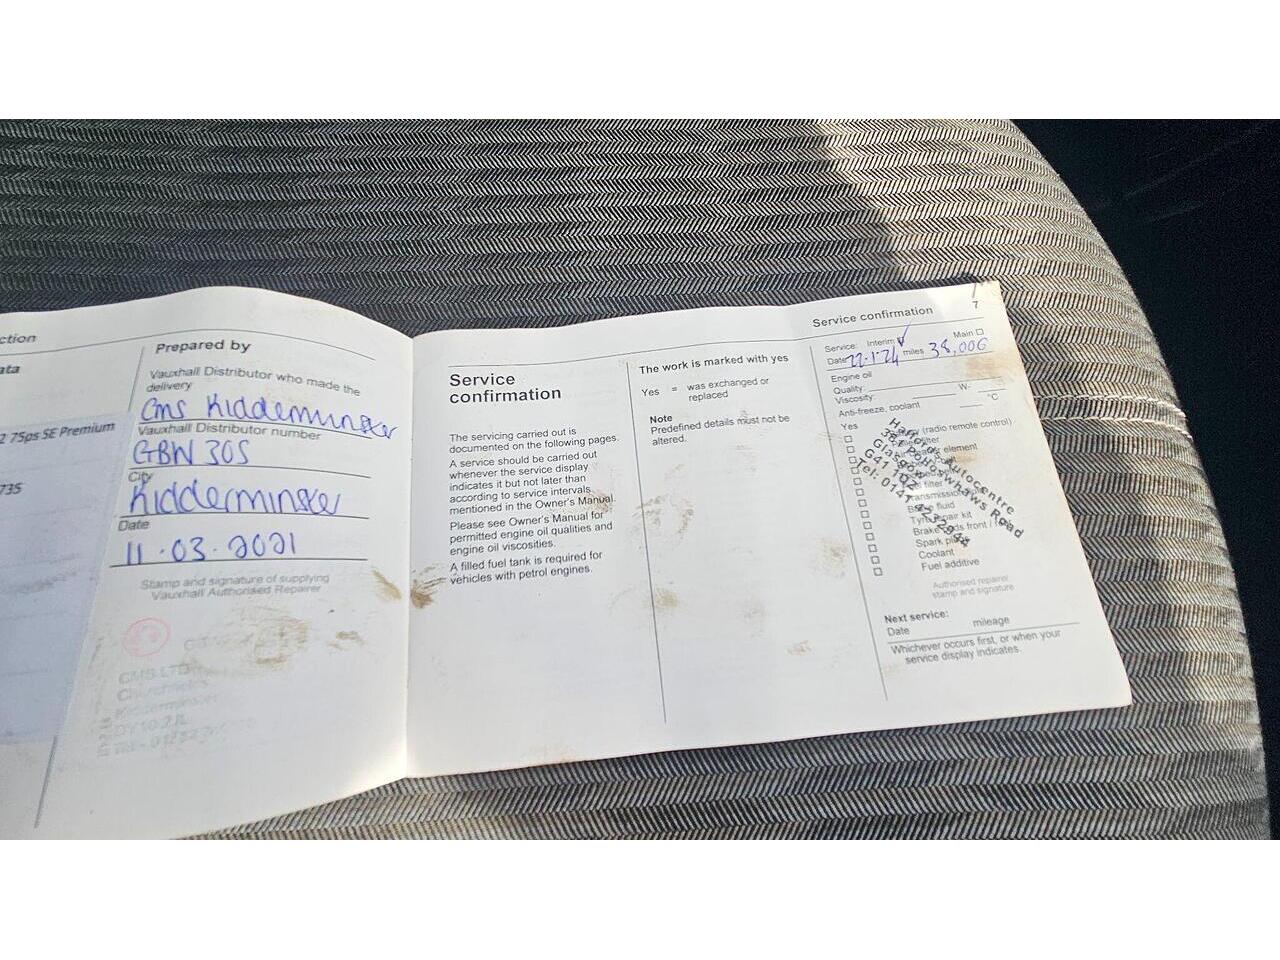 ction
ata
2 75ps SE Premium
735
Prepared by
Vauxhall Distributor who made the
delivery:
CMS Kidderminster
Vauxhall Distributor number
GBW 305
City
Kidderminster
Date
11.03.2021
Stamp and signature of supplying
Vauxhall Authorised Repairer
CMS LTD
Kidderminster
DY10 2JL
Service
confirmation
The servicing carried out is
documented on the following pages.
A service should be carried out
whenever the service display
indicates it but not later than
according to service intervals
mentioned in the Owner's Manual.
Please see Owner's Manual for
permitted engine oil qualities and
engine oil viscosities.
A filled fuel tank is required for
vehicles with petrol engines.
The work is marked with yes
Yes = was exchanged or
replaced
Note
Predefined details must not be
altered.
Service confirmation 7
Service: Interim ✓ Main
Date 22.1.24 miles 38,006
Engine oil
Quality: W-
Viscosity: °C
Anti-freeze, coolant
Yes
(radio remote control)
element
filter
Transmission
fluid
Tyre repair kit
Brake pads front /
Spark
Coolant
Fuel additive
Autocentre
Pollokshaws Road
Glasgow
G41
Tel: 0141
Authorised repairer
stamp and signature
Next service:
Date mileage
Whichever occurs first, or when your
service display indicates.